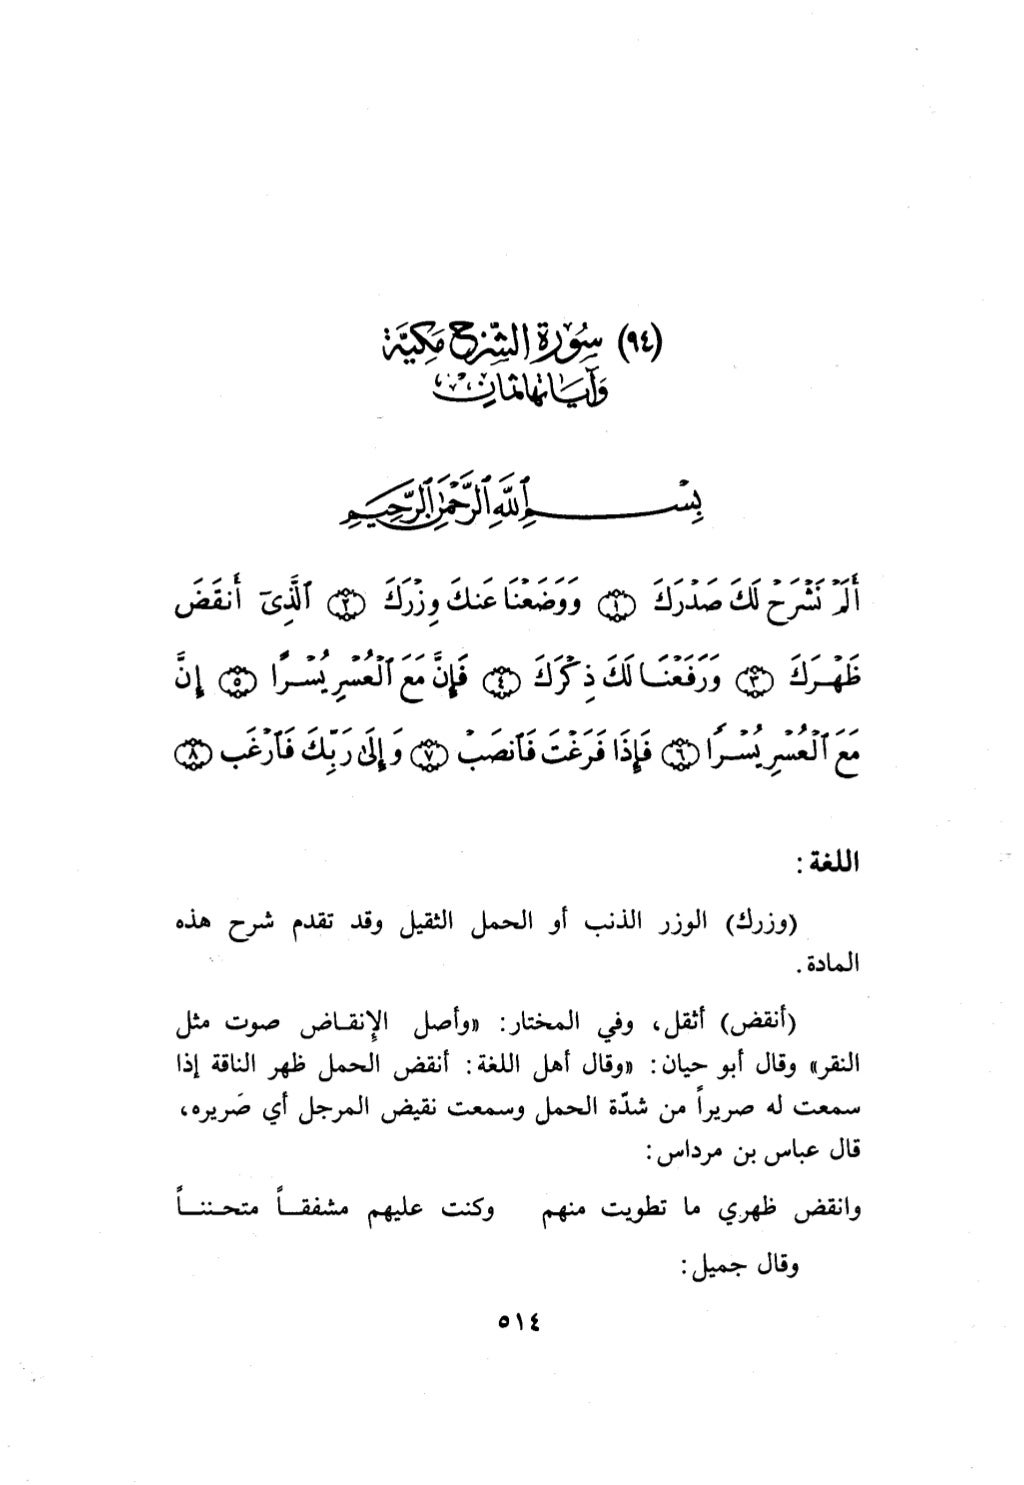 (٩٤) سُورَةِ الشَّرْحِ مَكِيَّة
وَآيَاتُهَا ثَمَانٍ
بِسْمِ ٱللَّهِ ٱلرَّحْمَٰنِ ٱلرَّحِيمِ
أَلَمْ نَشْرَحْ لَكَ صَدْرَكَ ﴿١﴾ وَوَضَعْنَا عَنكَ وِزْرَكَ ﴿٢﴾ ٱلَّذِىٓ أَنقَضَ
ظَهْرَكَ ﴿٣﴾ وَرَفَعْنَا لَكَ ذِكْرَكَ ﴿٤﴾ فَإِنَّ مَعَ ٱلْعُسْرِ يُسْرًا ﴿٥﴾ إِنَّ
مَعَ ٱلْعُسْرِ يُسْرًا ﴿٦﴾ فَإِذَا فَرَغْتَ فَٱنصَبْ ﴿٧﴾ وَإِلَىٰ رَبِّكَ فَٱرْغَب ﴿٨﴾
اللغة :
(وزرك) الوزر الذنب أو الحمل الثقيل وقد تقدم شرح هذه
المادة .
(أنقض) أثقل، وفي المختار: «وأصل الإنقاض صوت مثل
النقر» وقال أبو حيان: «وقال أهل اللغة: أنقض الحمل ظهر الناقة إذا
سمعت له صريراً من شدّة الحمل وسمعت نقيض المرجل أي صَريره،
قال عباس بن مرداس:
وانقض ظهري ما تطويت منهم وكنت عليهم مشفقاً متحنناً
وقال جميل:
٥١٤